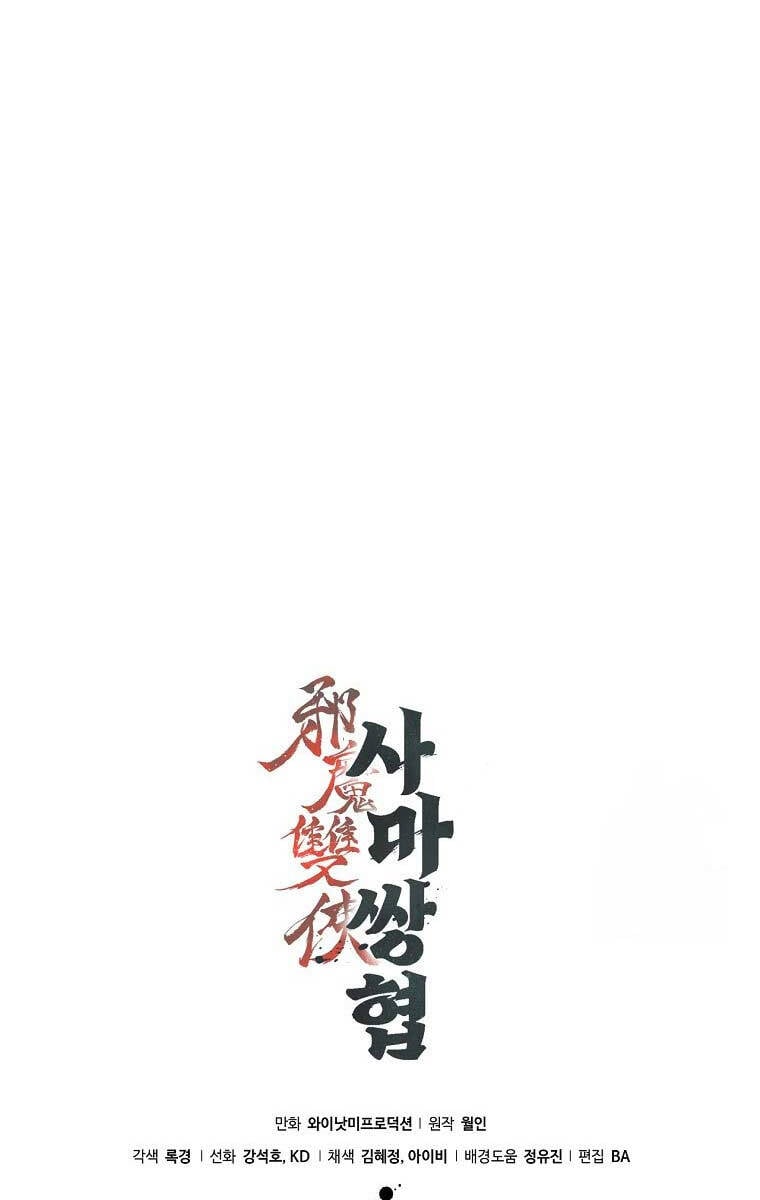 邪魔雙俠
사마쌍협
만화 와이낫미프로덕션 | 원작 월인
각색 록경 | 선화 강석호, KD | 채색 김혜정, 아이비 | 배경도움 정유진 | 편집 BA